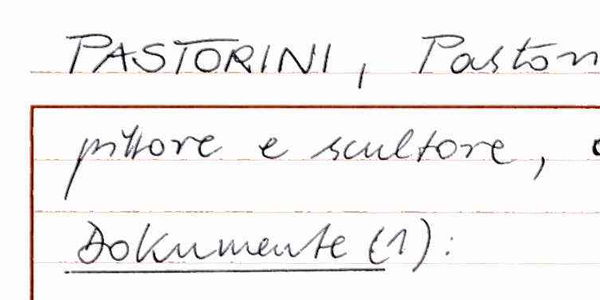 PASTORINI, Paston
pittore e scultore,
Dokumente (1):